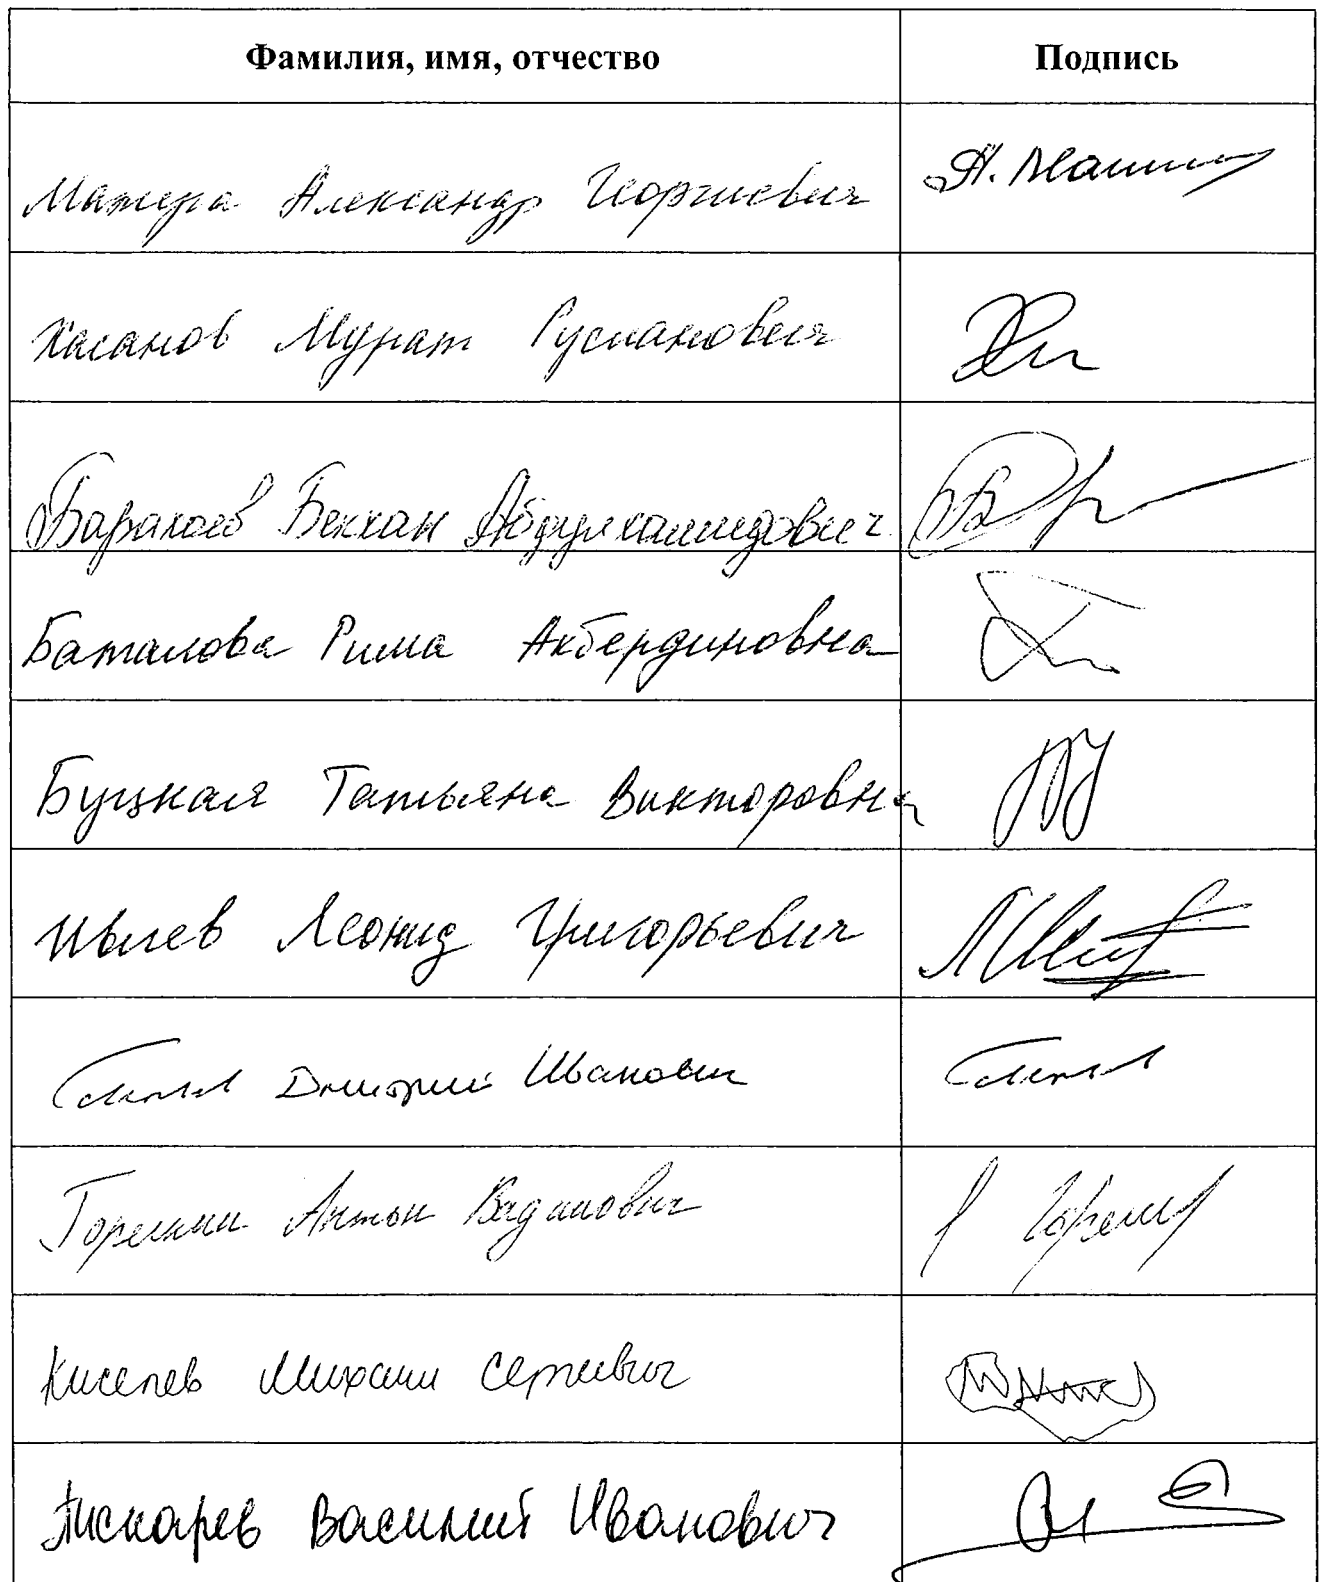 Фамилия, имя, отчество Подпись
Матера Александр Георгиевич А. Мат
Хасанов Мурат Русланович
Барахоев Бекхан Абдулхамидович
Баталова Рима Акбердиновна
Буцкая Татьяна Викторовна
Ивлев Леонид Григорьевич
Дмитрий Иванович
Горелкин Антон Вадимович
Киселев Михаил Сергеевич
Пискарев Василий Иванович